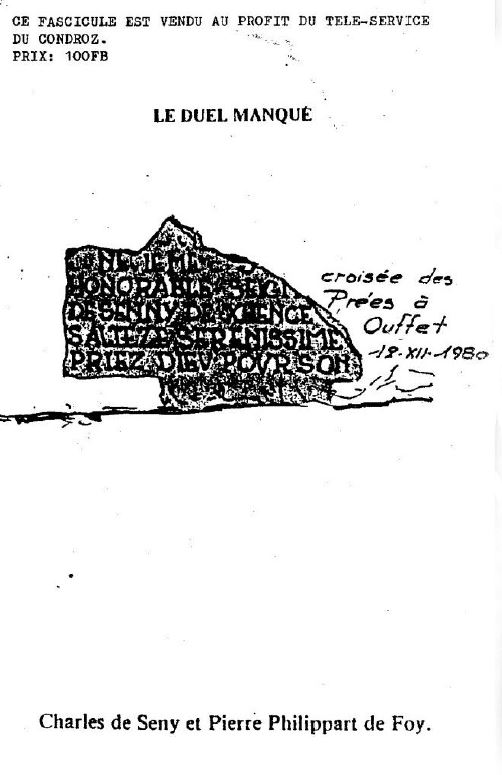 CE FASCICULE EST VENDU AU PROFIT DU TELE-SERVICE
DU CONDROZ.
PRIX: 100FB
LE DUEL MANQUÉ
HONORABLE SEIG
DE SENNY DE
SERENISSIME
PRIEZ DIEV POVR SON
croisée des
Prées à
Ouffet
-12-XII-1980
Charles de Seny et Pierre Philippart de Foy.